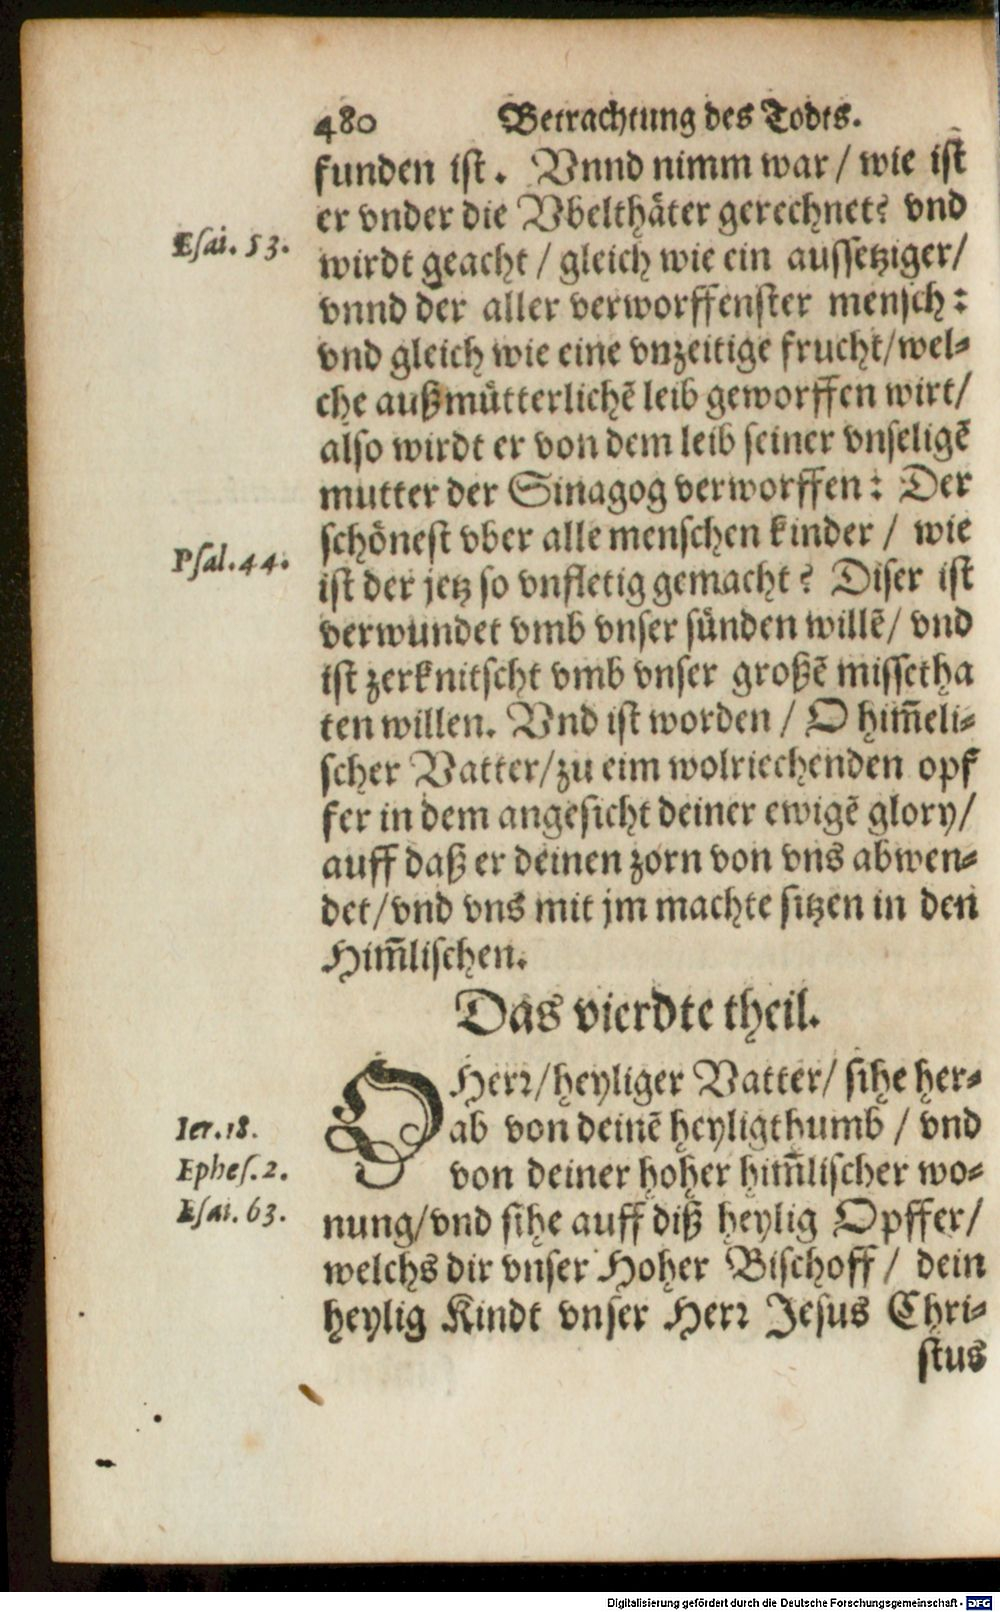 480 Betrachtung des Todts.
funden ist. Vnnd nimm war / wie ist
er vnder die Vbelthäter gerechnet? vnd
Esai. 53.
wirdt geacht / gleich wie ein aussetziger/
vnnd der aller verworffenster mensch:
vnd gleich wie eine vnzeitige frucht/wel-
che außmütterlichẽ leib geworffen wirt/
also wirdt er von dem leib seiner vnseligẽ
mutter der Sinagog verworffen: Der
schönest vber alle menschen kinder / wie
Psal. 44.
ist der jetz so vnfletig gemacht? Diser ist
verwundet vmb vnser sünden willẽ/ vnd
ist zerknitscht vmb vnser großẽ missetha
ten willen. Vnd ist worden / O him̃eli-
scher Vatter/zu eim wolriechenden opf
fer in dem angesicht deiner ewigẽ glory/
auff daß er deinen zorn von vns abwen-
det/vnd vns mit jm machte sitzen in den
Him̃lischen.
Das vierdte theil.
O Herr/heyliger Vatter/ sihe her-
ab von deinẽ heyligthumb / vnd
Ier. 18.
von deiner hoher him̃lischer wo-
Ephes. 2.
nung/vnd sihe auff diß heylig Opffer/
Esai. 63.
welchs dir vnser Hoher Bischoff / dein
heylig Kindt vnser Herr Jesus Chri-
stus
Digitalisierung gefördert durch die Deutsche Forschungsgemeinschaft - DFG